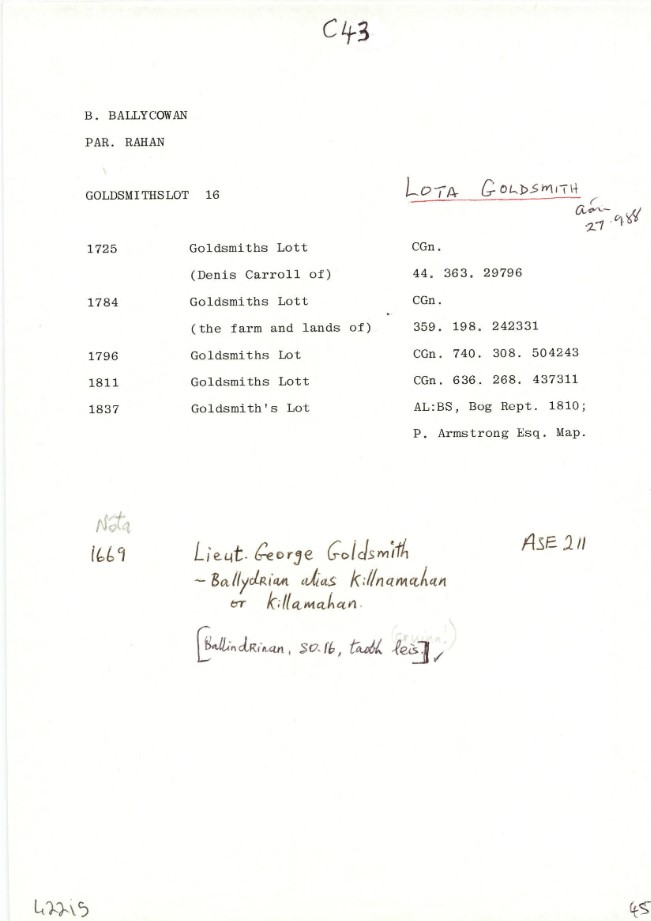 C43
B. BALLYCOWAN
PAR. RAHAN
GOLDSMITHSLOT 16 LOTA GOLDSMITH
27.988
1725 Goldsmiths Lott CGn.
(Denis Carroll of) 44. 363. 29796
1784 Goldsmiths Lott CGn.
(the farm and lands of) 359. 198. 242331
1796 Goldsmiths Lot CGn. 740. 308. 504243
1811 Goldsmiths Lott CGn. 636. 268. 437311
1837 Goldsmith's Lot AL:BS, Bog Rept. 1810;
P. Armstrong Esq. Map.
Nóta
1669 Lieut. George Goldsmith ASE 211
~ Ballydrian alias Killnamahan
or Killamahan.
[Ballindrinan, SO.16, taobh leis.] ✓
45